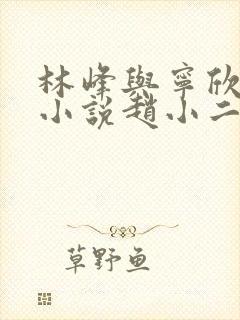 林峰與寧欣
小說趙小二
草野鱼